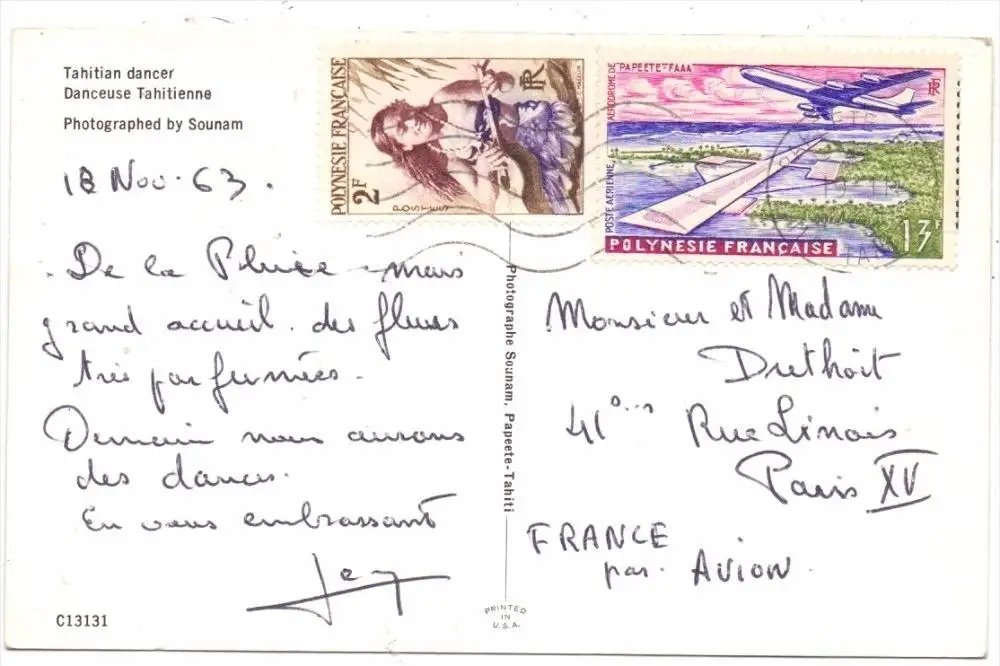 Tahitian dancer
Danseuse Tahitienne
Photographed by Sounam
18 Nov. 63.
POLYNESIE FRANÇAISE
2F
POSTES
RF
AERODROME DE PAPEETE-FAAA
POSTE AERIENNE
RF
POLYNESIE FRANÇAISE
13F
De la Pluie mais
grand accueil. des fleurs
très parfumées.
Demain nous aurons
des danses.
En vous embrassant
Photographe Sounam, Papeete-Tahiti
Monsieur et Madame
41
Rue Linois
Paris XV
FRANCE
par. AVION.
C13131
PRINTED
IN
U.S.A.